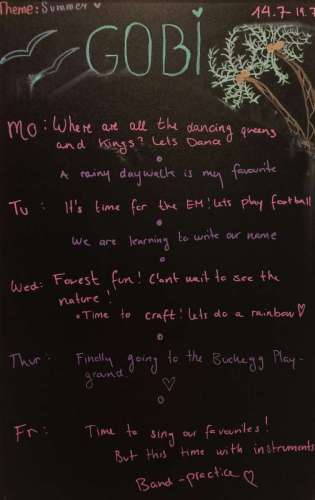 Theme: Summer
14.7 - 19.7
GOBI
Mo: Where are all the dancing queens
and Kings? Lets Dance
A rainy daywalk is my favourite
Tu: It's time for the EM! Lets play football
We are learning to write our name
Wed: Forest fun! Can't wait to see the
nature!
• Time to craft! Lets do a rainbow
Thur: Finally going to the Buchegg Play-
ground.
Fr: Time to sing our favourites!
But this time with instruments
Band-practice